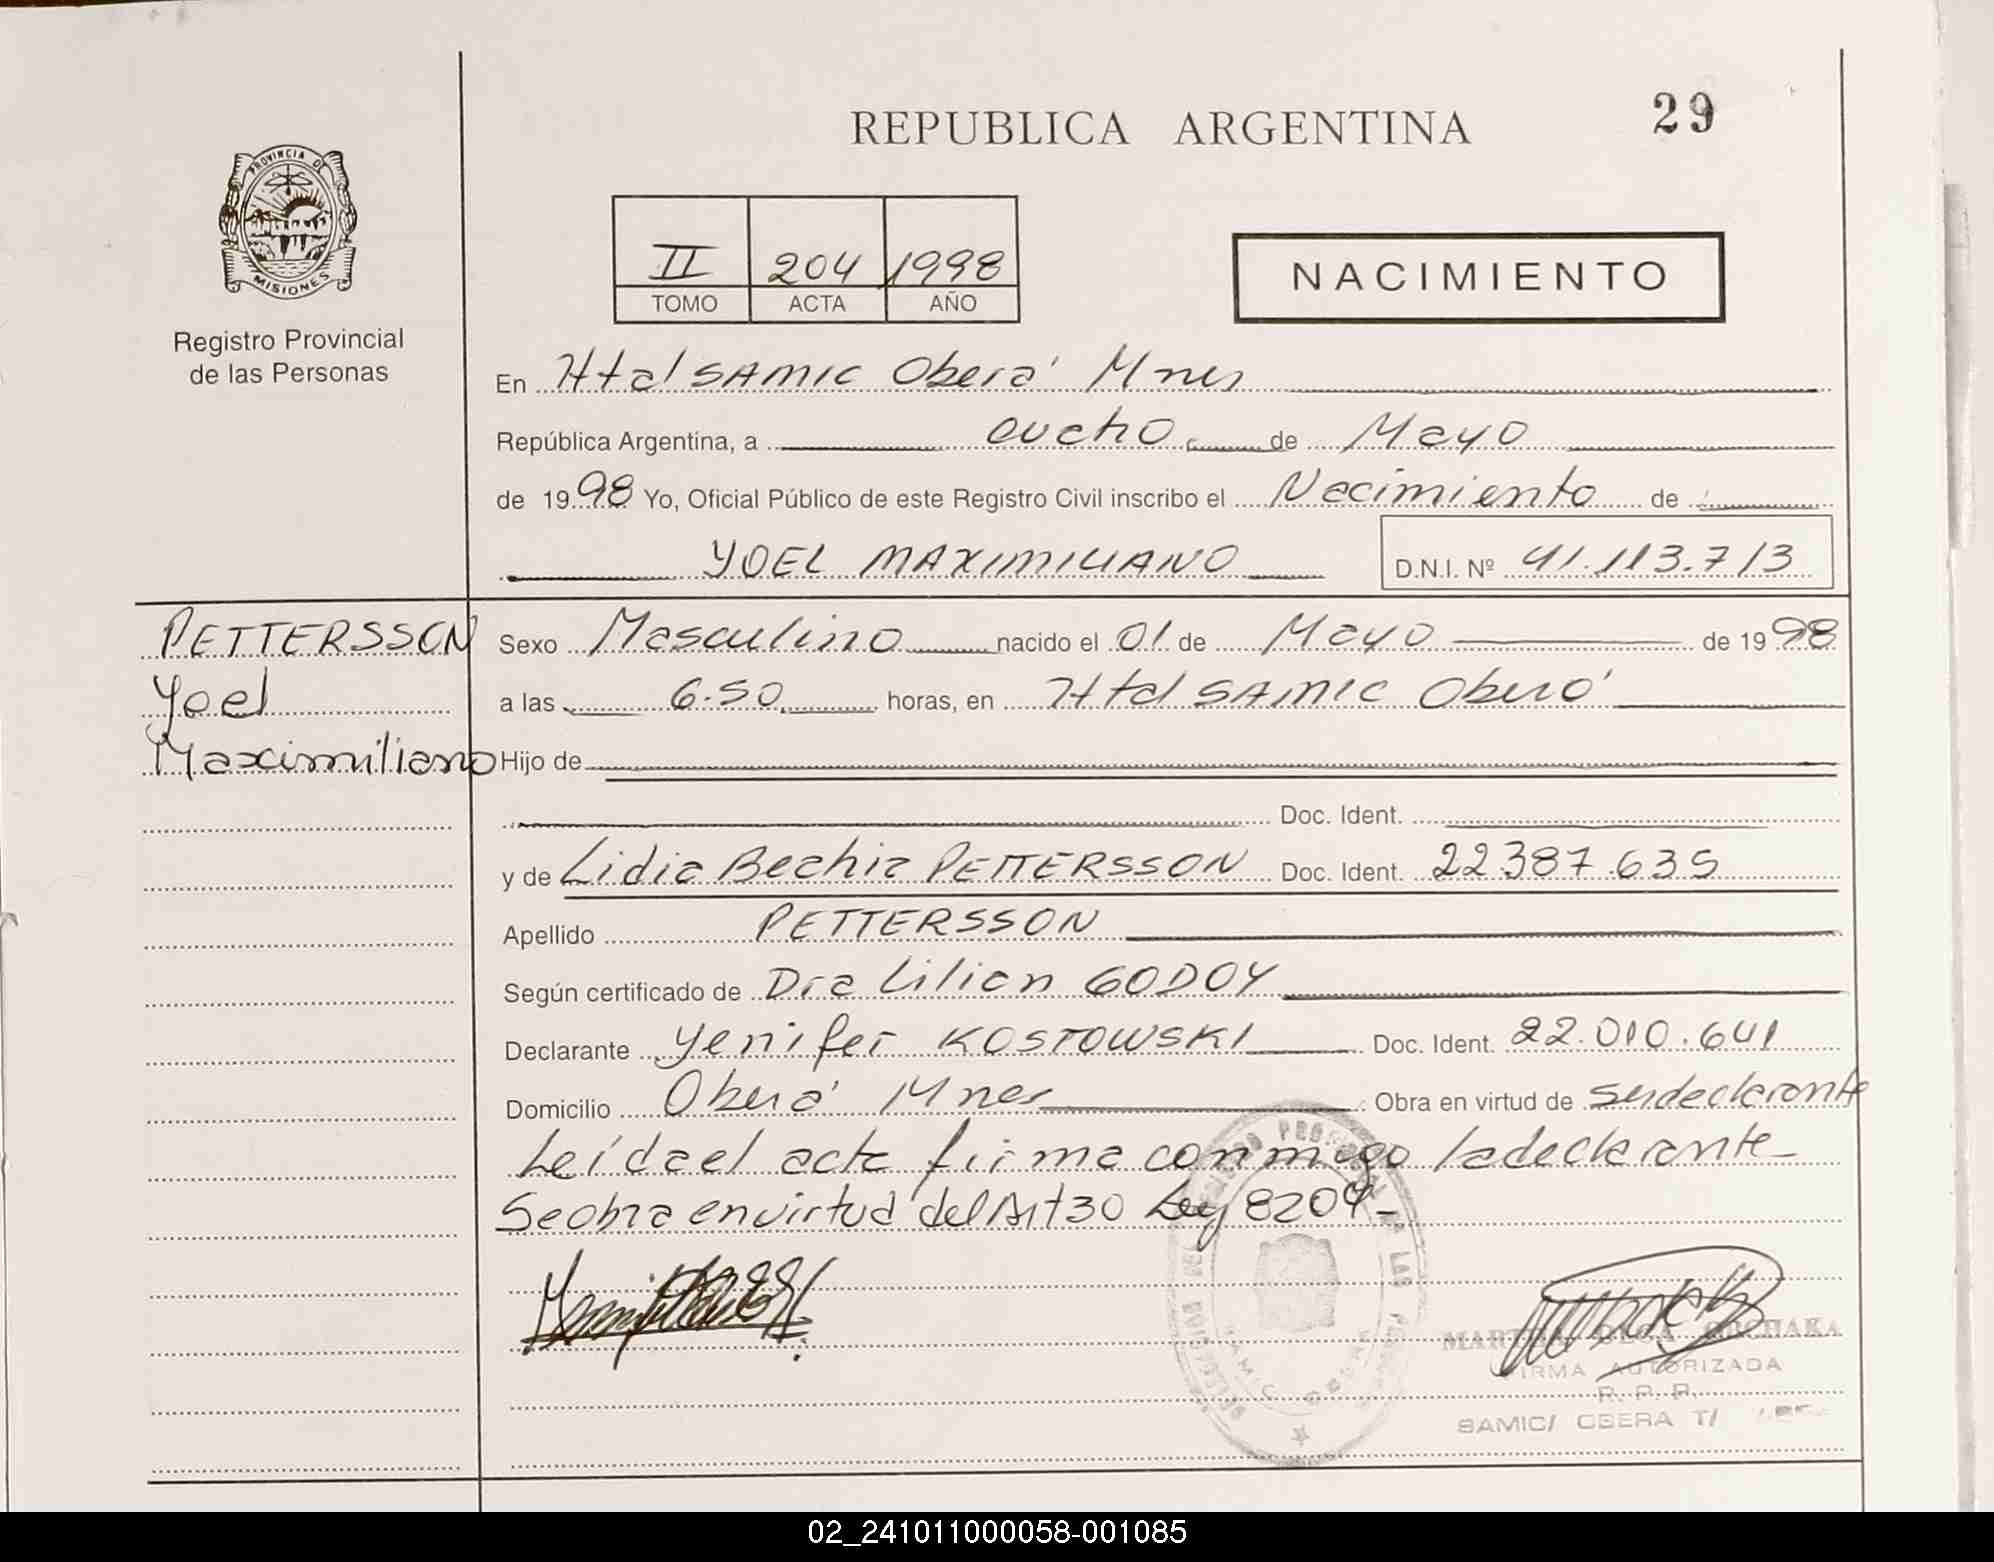 REPUBLICA ARGENTINA
29
PROVINCIA DE
MISIONES
Registro Provincial
de las Personas
II 204 1998
TOMO ACTA AÑO
NACIMIENTO
En Htal SAMIC Oberá Mnes
República Argentina, a ocho de Mayo
de 1998 Yo, Oficial Público de este Registro Civil inscribo el Nacimiento de
YOEL MAXIMILIANO D.N.I. Nº 41.113.713
PETTERSSON
Yoel
Maximiliano
Sexo Masculino nacido el 01 de Mayo de 1998
a las 6.50 horas, en Htal SAMIC Oberá
Hijo de
Doc. Ident.
y de Lidia PETTERSSON Doc. Ident. 22387.635
Apellido PETTERSSON
Según certificado de Dra Lilian GODOY
Declarante Yenifer KOSTOWSKI Doc. Ident. 22.010.641
Domicilio Oberá Mnes Obra en virtud de ser declarante
Leída el acta firma conmigo la declarante
Se obra en virtud del Art 30 Ley 8204-
FIRMA AUTORIZADA
R. P. P.
SAMIC/ OBERA T/
02_241011000058-001085